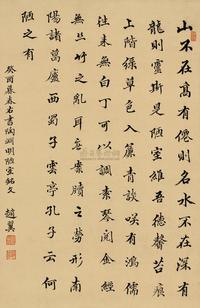 山不在高有僊則名水不在深有
龍則靈斯是陋室維吾德馨苔痕
上階綠草色入簾青談咲有鴻儒
往来無白丁可以調素琴閱金經
無絲竹之亂耳無案牘之勞形南
陽諸葛廬西蜀子雲亭孔子云何
陋之有
癸酉暮春右書陶淵明陋室銘文 趙翼